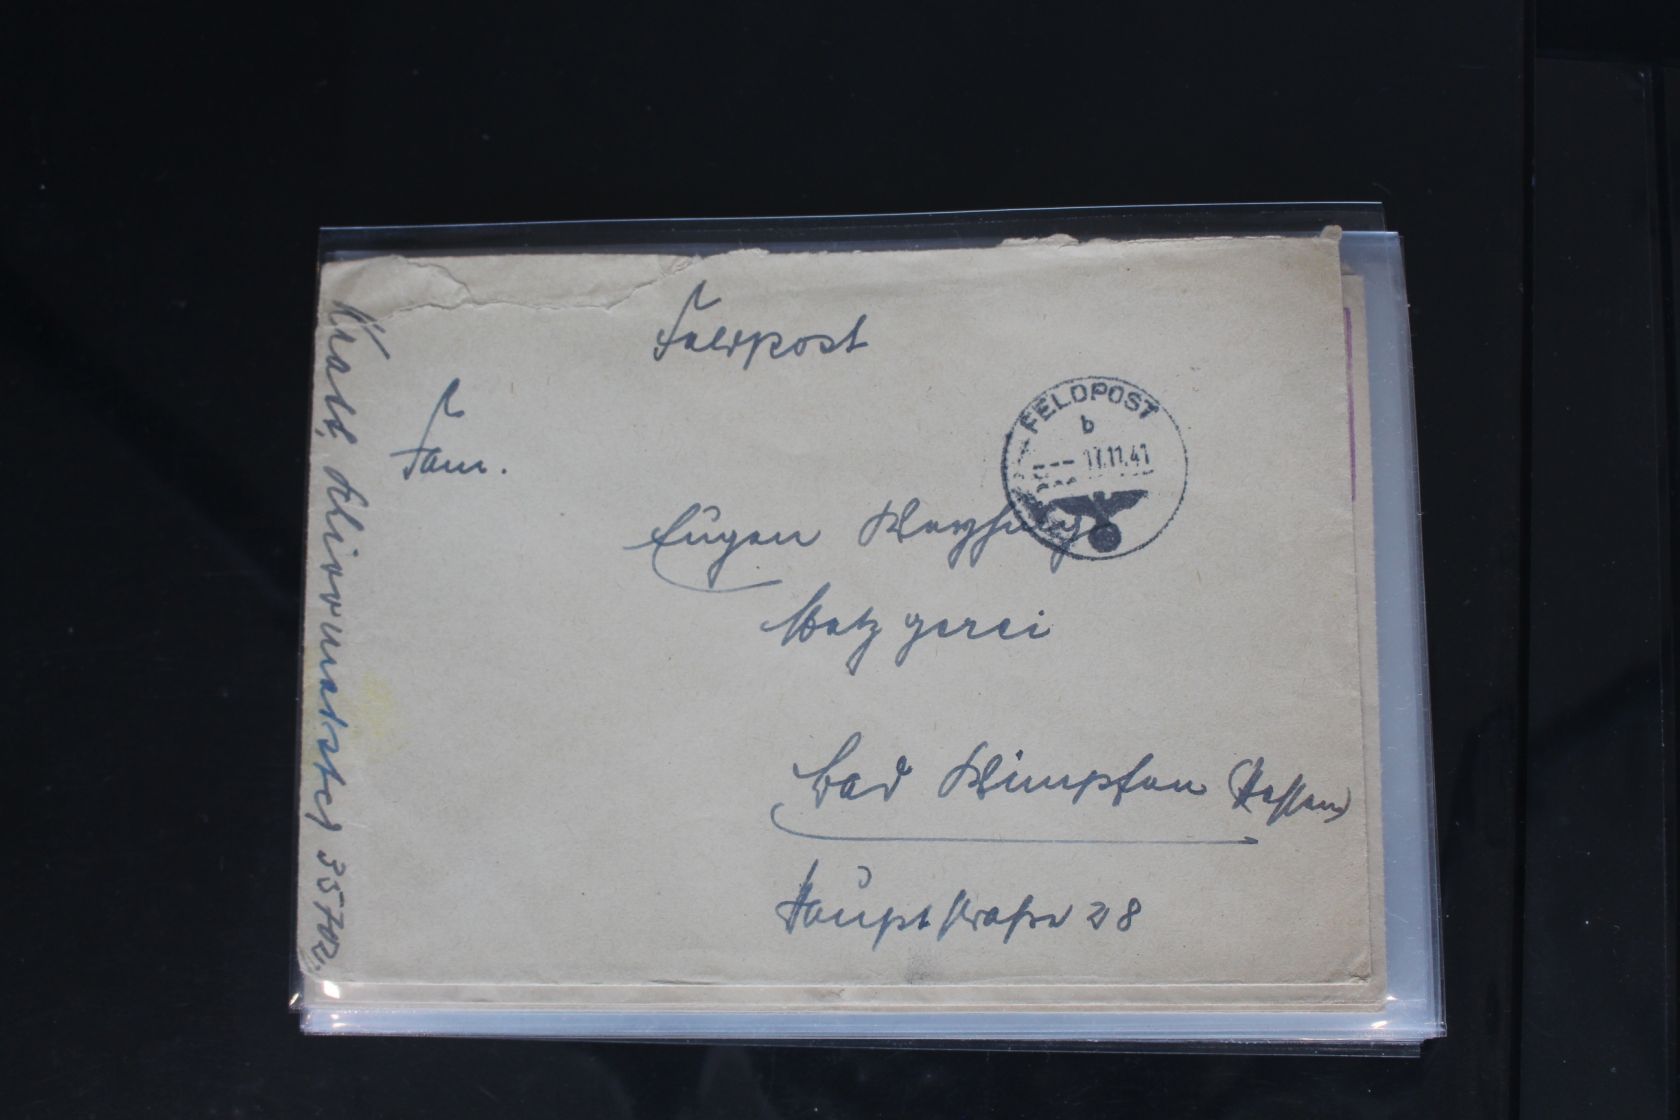 Feldpost
FELDPOST
b
17.11.41
Fam.
Eugen
Metzgerei
Bad Wimpfen (Hessen)
Hauptstraße 28
35702.